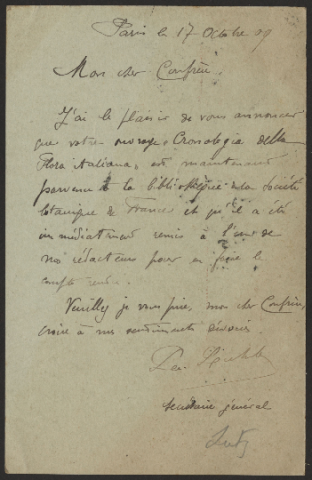 Paris le 17 Octobre 09
Mon cher Confrère
J'ai le plaisir de vous annoncer
que votre ouvrage "Cronologia della
Flora Italiana" est maintenant
parvenu à la bibliothèque de la Société
botanique de France et qu'il a été
immédiatement remis à l'un de
nos rédacteurs pour en faire le
compte rendu.
Veuillez je vous prie, mon cher Confrère,
croire à mes sentiments dévoués
secrétaire général
Lutz